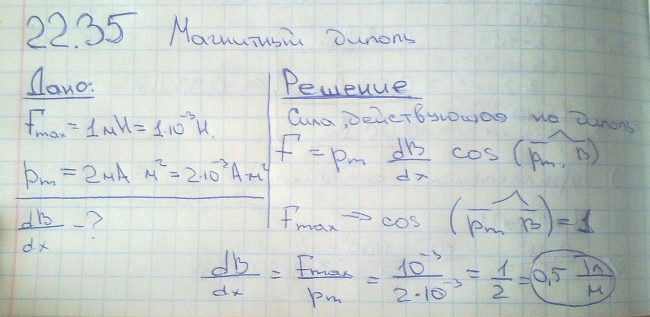 22.35 Магнитный диполь
Дано:
Fmax = 1мН = 1·10⁻³ Н.
pm = 2мА м² = 2·10⁻³ А·м²
dB/dx - ?
Решение
Сила, действующая на диполь
F = pm dB/dx cos (p̄m, B̄)
Fmax => cos (p̄m B̄) = 1
dB/dx = Fmax/pm = 10⁻³/2·10⁻³ = 1/2 = 0,5 Тл/м